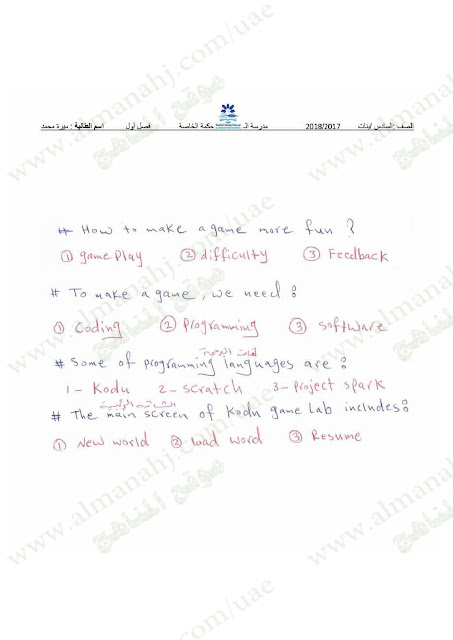 الصف : السادس /بنات 2018/2017 مدرسة الـ حكمة الخاصة فصل أول اسم الطالبة : ميرة محمد
# How to make a game more fun ?
① game Play ② difficulty ③ Feedback
# To make a game, we need :
① Coding ② Programming ③ software
لغات البرمجة
# Some of programming languages are :
1 - Kodu 2 - scratch 3 - Project spark
الشاشة الرئيسية
# The main screen of Kodu game Lab includes:
① New world ② load word ③ Resume
www.almanahj.com/uae
موقع المناهج